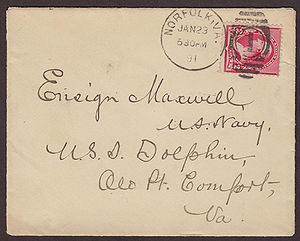 NORFOLK, VA.
JAN 23
530PM
91
Ensign Maxwell,
U.S. Navy,
U.S.S. Dolphin,
Old Pt. Comfort,
Va.